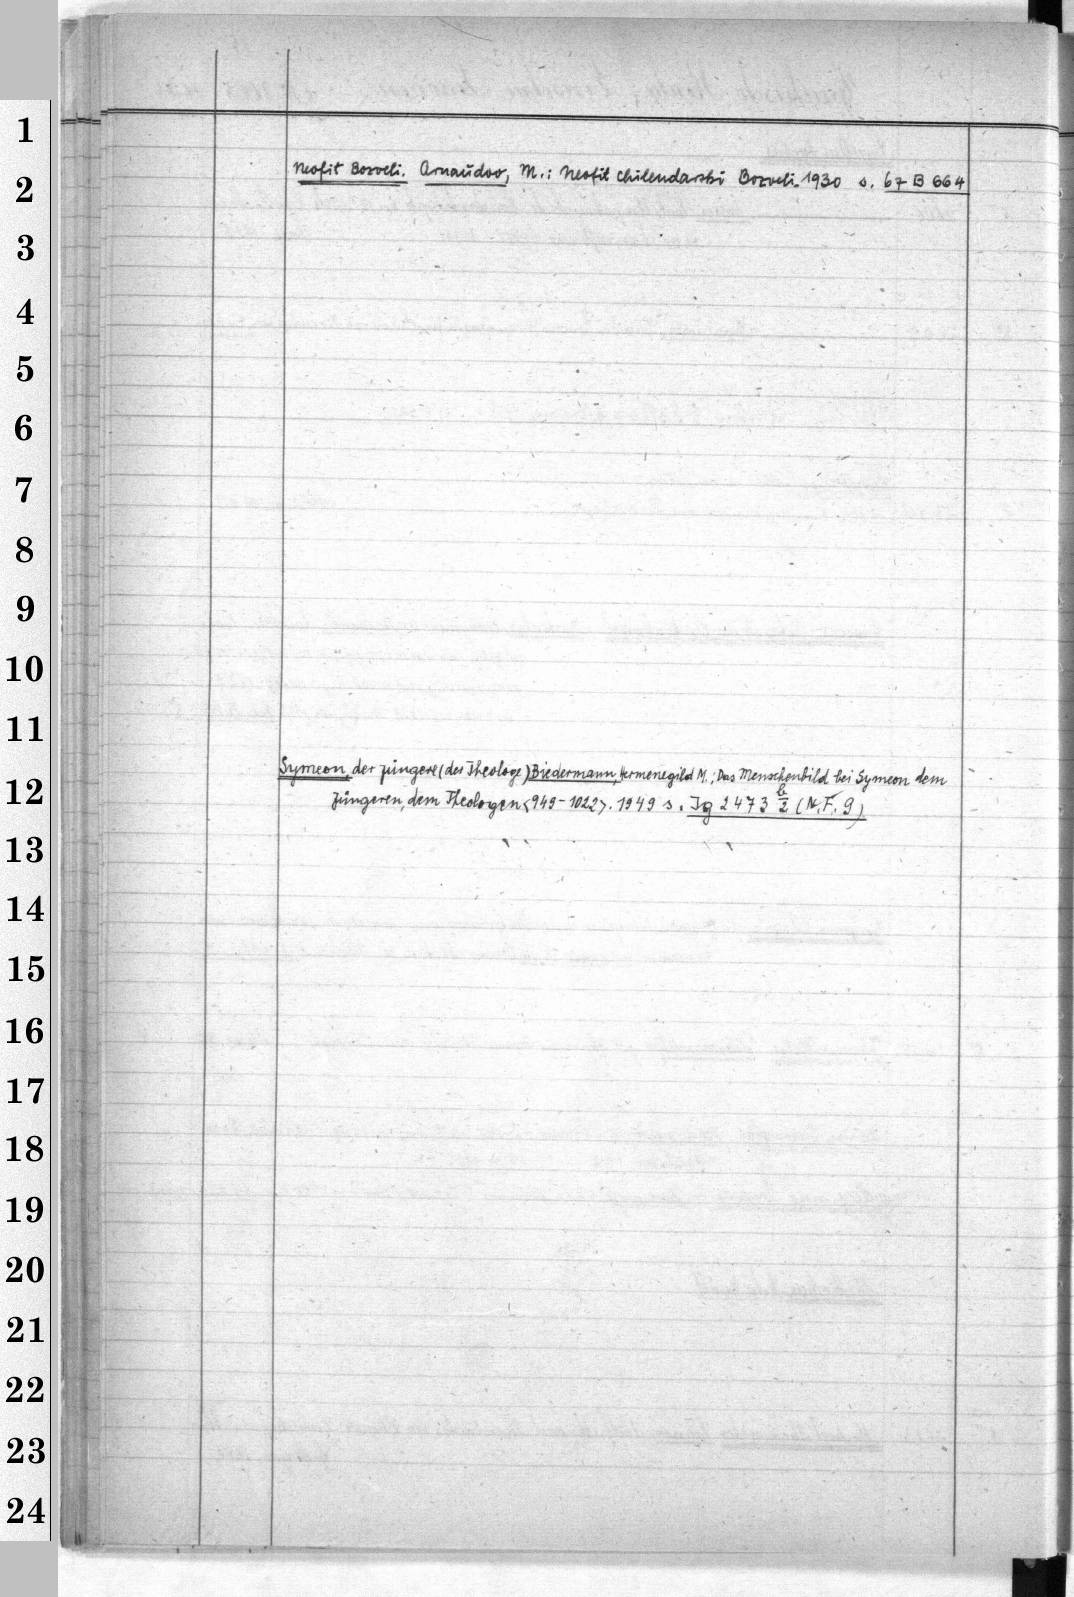 1
2
3
4
5
6
7
8
9
10
11
12
13
14
15
16
17
18
19
20
21
22
23
24
Neofit Bozveli. Arnaŭdov, M.: Neofit chilendarski Bozveli. 1930 s. 67 B 664
Symeon, der Jüngere (der Theologe) Biedermann, Hermenegild M.: Das Menschenbild bei Symeon dem
Jüngeren, dem Theologen <949-1022>. 1949 s. Ig 2473 b/2 (N.F. 9)